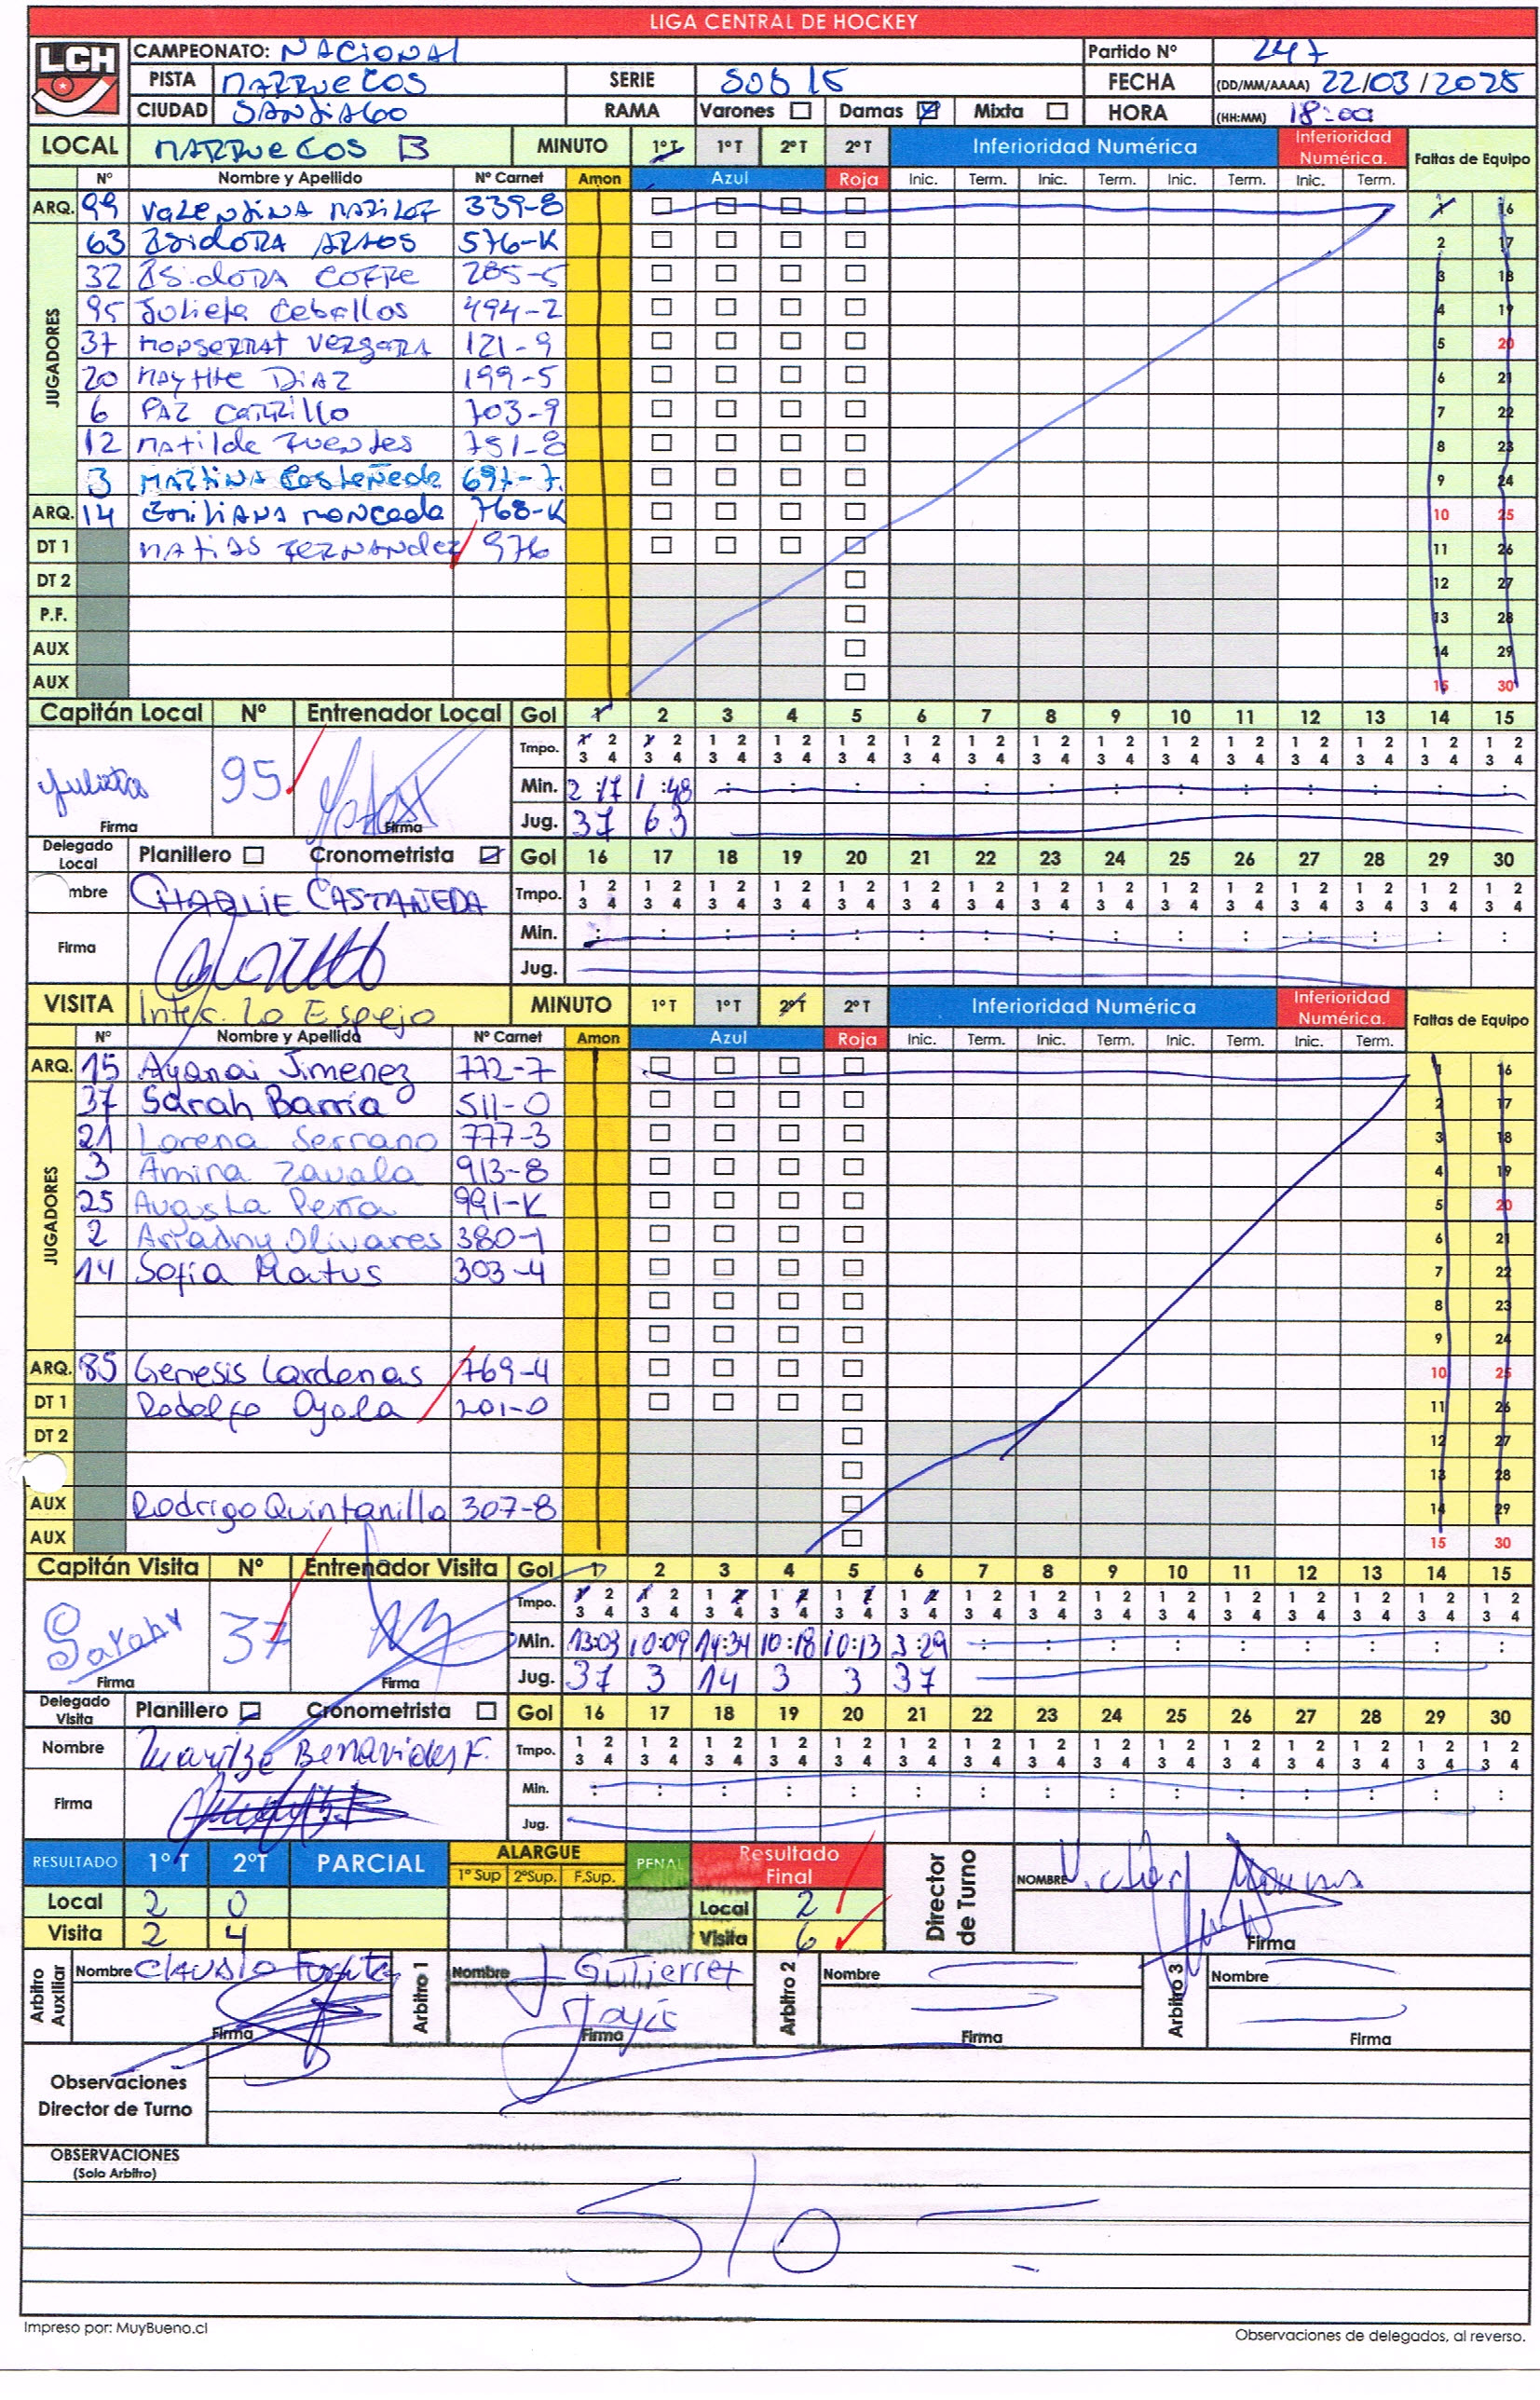 LIGA CENTRAL DE HOCKEY
LCH
CAMPEONATO: NACIONAL Partido Nº 247
PISTA MARRUECOS SERIE SUB 15 FECHA (DD/MM/AAAA) 22/03/2025
CIUDAD SANTIAGO RAMA Varones Damas Mixta HORA (HH:MM) 18:00
LOCAL MARRUECOS B MINUTO 1º T 1º T 2º T 2º T Inferioridad Numérica Inferioridad Numérica. Faltas de Equipo
Nº Nombre y Apellido Nº Carnet Amon Azul Roja Inic. Term. Inic. Term. Inic. Term. Inic. Term.
ARQ. 99 VALENTINA 339-8 1 16
JUGADORES
63 ISIDORA 576-K 2 17
32 ISIDORA COFRE 285-5 3 18
95 Julieta Ceballos 494-2 4 19
37 MONSERRAT VERGARA 121-9 5 20
20 MAYTHE DIAZ 199-5 6 21
6 PAZ CARRILLO 703-9 7 22
12 MATILDE FUENTES 751-8 8 23
3 MARTINA Castañeda 697-7 9 24
ARQ. 14 EMILIANA MONCADA 768-K 10 25
DT 1 MATIAS FERNANDEZ 976 11 26
DT 2 12 27
P.F. 13 28
AUX 14 29
AUX 15 30
Capitán Local Nº Entrenador Local Gol 1 2 3 4 5 6 7 8 9 10 11 12 13 14 15
Tmpo. 1 2 1 2 1 2 1 2 1 2 1 2 1 2 1 2 1 2 1 2 1 2 1 2 1 2 1 2 1 2
3 4 3 4 3 4 3 4 3 4 3 4 3 4 3 4 3 4 3 4 3 4 3 4 3 4 3 4 3 4
Julieta 95 Min. 2:17 1:48 : : : : : : : : : : : : :
Firma Firma Jug. 37 63
Delegado Local Planillero Cronometrista Gol 16 17 18 19 20 21 22 23 24 25 26 27 28 29 30
mbre CHARLIE CASTAÑEDA Tmpo. 1 2 1 2 1 2 1 2 1 2 1 2 1 2 1 2 1 2 1 2 1 2 1 2 1 2 1 2 1 2
3 4 3 4 3 4 3 4 3 4 3 4 3 4 3 4 3 4 3 4 3 4 3 4 3 4 3 4 3 4
Firma Min. : : : : : : : : : : : : : : :
Jug.
VISITA Inter. Lo Espejo MINUTO 1º T 1º T 2º T 2º T Inferioridad Numérica Inferioridad Numérica. Faltas de Equipo
Nº Nombre y Apellido Nº Carnet Amon Azul Roja Inic. Term. Inic. Term. Inic. Term. Inic. Term.
ARQ. 15 Ayanai Jimenez 772-7 1 16
JUGADORES
37 Sarah Barria 511-0 2 17
21 Lorena Serrano 777-3 3 18
3 Amina Zavala 913-8 4 19
25 Augusta Peña 991-K 5 20
2 Ariadny Olivares 380-1 6 21
14 Sofia Matus 303-4 7 22
8 23
9 24
ARQ. 85 Genesis Cardenas 769-4 10 25
DT 1 Rodolfo Oyola 201-0 11 26
DT 2 12 27
13 28
AUX Rodrigo Quintanilla 307-8 14 29
AUX 15 30
Capitán Visita Nº Entrenador Visita Gol 1 2 3 4 5 6 7 8 9 10 11 12 13 14 15
Tmpo. 1 2 1 2 1 2 1 2 1 2 1 2 1 2 1 2 1 2 1 2 1 2 1 2 1 2 1 2 1 2
3 4 3 4 3 4 3 4 3 4 3 4 3 4 3 4 3 4 3 4 3 4 3 4 3 4 3 4 3 4
Sarah 37 Min. 13:03 10:09 14:34 10:18 10:13 3:29 : : : : : : : : :
Firma Firma Jug. 37 3 14 3 3 37
Delegado Visita Planillero Cronometrista Gol 16 17 18 19 20 21 22 23 24 25 26 27 28 29 30
Nombre Maritza Benavides F. Tmpo. 1 2 1 2 1 2 1 2 1 2 1 2 1 2 1 2 1 2 1 2 1 2 1 2 1 2 1 2 1 2
3 4 3 4 3 4 3 4 3 4 3 4 3 4 3 4 3 4 3 4 3 4 3 4 3 4 3 4 3 4
Firma Min. : : : : : : : : : : : : : : :
Jug.
RESULTADO 1º T 2ºT PARCIAL ALARGUE PENAL Resultado Final Director de Turno NOMBRE
1º Sup 2ºSup. F.Sup.
Local 2 0 Local 2
Visita 2 4 Visita 6 Firma
Arbitro Auxiliar Nombre CLAUDIO Arbitro 1 Nombre J Gutierrez Arbitro 2 Nombre Arbitro 3 Nombre
Firma Firma Firma Firma
Observaciones
Director de Turno
OBSERVACIONES
(Solo Arbitro)
S/O
Impreso por: MuyBueno.cl
Observaciones de delegados, al reverso.